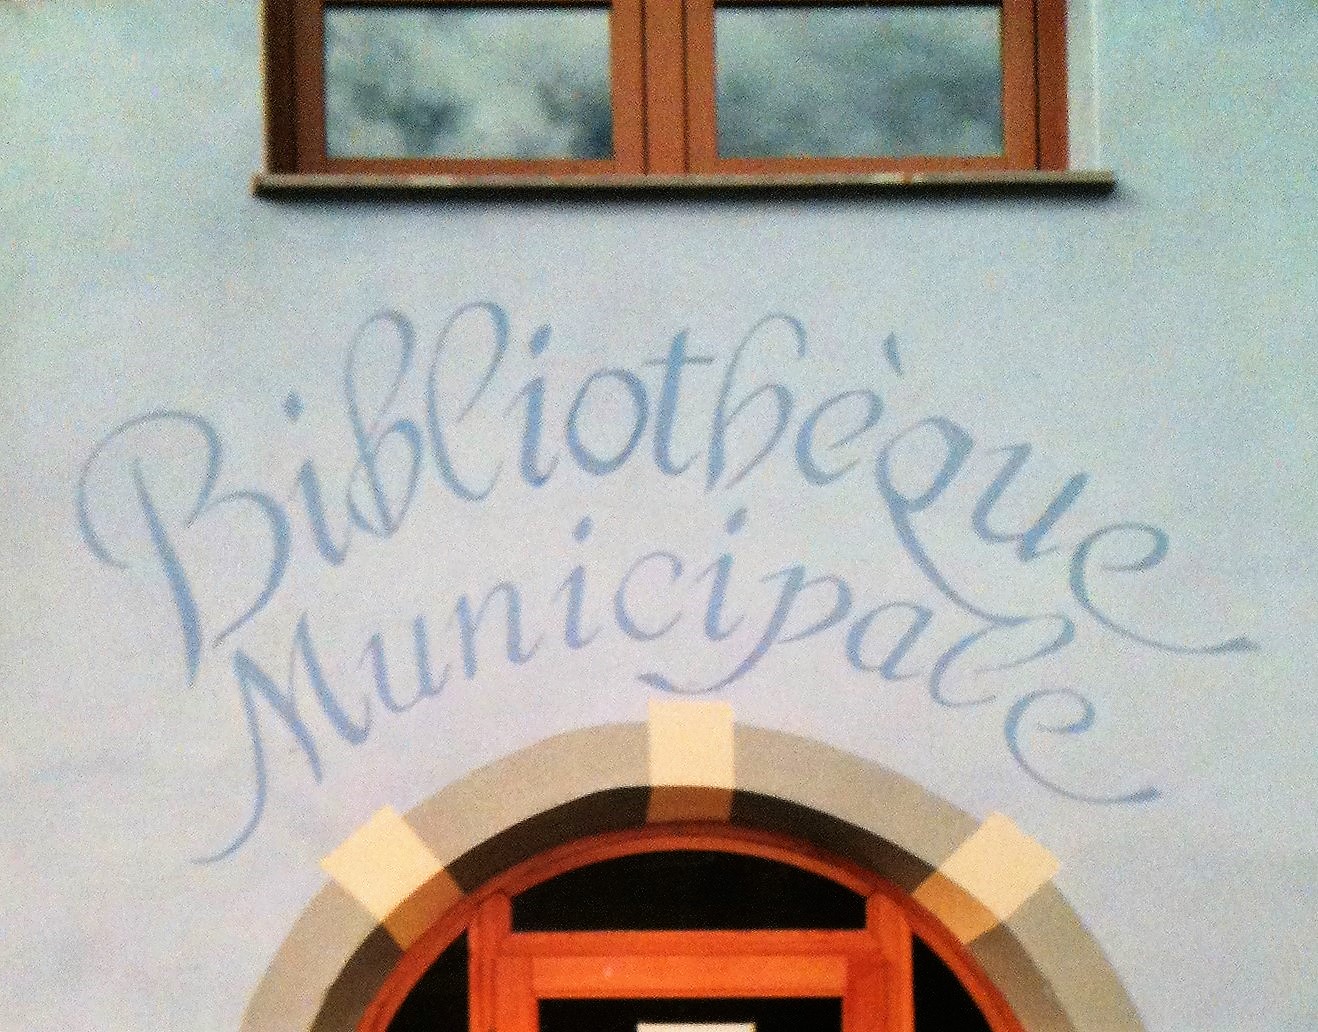 Bibliothèque
Municipale